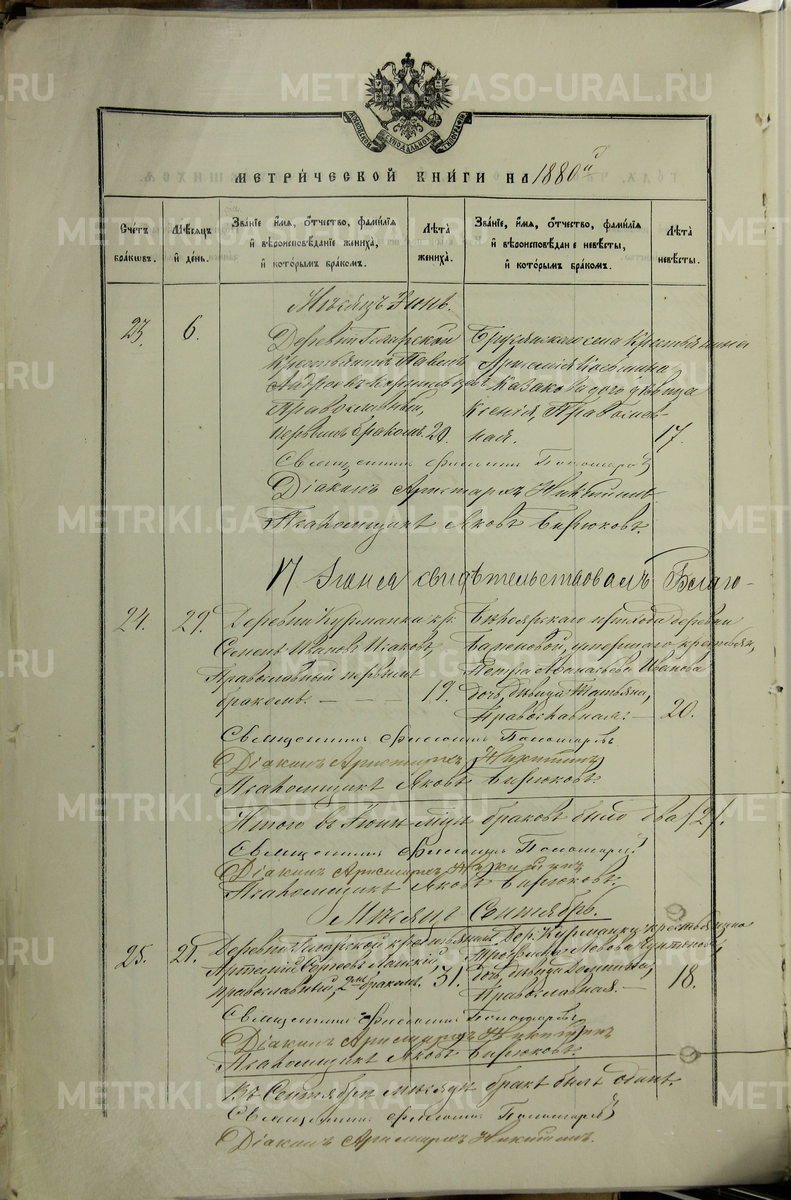 METRIKI.GASO-URAL.RU
МЕТРИ́ЧЕСКОЙ КНИ́ГИ НА 1880й г
Сче́тъ бра́кωвъ.
Мѣ́сяцъ й де́нь.
Зва́нїе и́мя, ѻ҆́тчество, фами́лїя й вѣроисповѣ́данїе жениха̀, й кото́рымъ бра́комъ.
Лѣ́та жениха̀.
Зва́нїе, и́мя, ѻ҆́тчество, фами́лїя й вѣроисповѣ́данїе невѣ́сты, й кото́рымъ бра́комъ.
Лѣ́та невѣ́сты.
Мѣсяцъ Iюнь.
23. 6.
Деревни
Крестьянинъ Павелъ
Андреевъ
Православный,
первымъ бракомъ. 20.
села Крестьянина
Казакова дочь девица
Ксенiя, Православ-
ная. 17.
Священникъ Пономаревъ
Дiаконъ Аристархъ Никитинъ
Псаломщикъ Яковъ Бирюковъ.
свидѣтельствовалъ Благо-
24. 29.
Деревни Курманки кр.
Семенъ Ивановъ Исаковъ,
Православный первымъ
бракомъ. — 19.
прихода деревни
умершаго крестьян.
Петра Иванова
дочь, девица Татьяна,
Православная. — 20.
Священникъ Пономаревъ
Дiаконъ Аристархъ Никитинъ
Псаломщикъ Яковъ Бирюковъ.
Итого въ Iюнѣ м-цѣ браковъ было два /2/.
Священникъ Пономаревъ
Дiаконъ Аристархъ Никитинъ
Псаломщикъ Яковъ Бирюковъ.
Мѣсяцъ Сентябрь.
25. 21.
Деревни крестьянинъ
Артемiй Сергѣевъ
Православный, 2мъ бракомъ. 31.
Дер. Курманки крестьянина
дочь, девица
Православная. — 18.
Священникъ Пономаревъ
Дiаконъ Аристархъ Никитинъ
Псаломщикъ Яковъ Бирюковъ.
Въ Сентябрѣ мѣсяцѣ бракъ былъ одинъ.
Священникъ Пономаревъ
Дiаконъ Аристархъ Никитинъ.